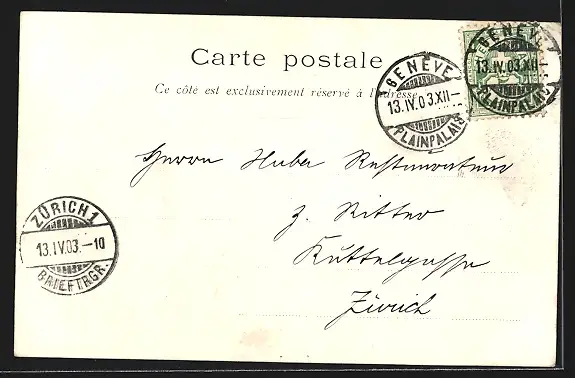 Carte postale
Ce côté est exclusivement réservé à l'adresse.
GENÈVE
13.IV.03.XII–
PLAINPALAIS
GENÈVE
13.IV.03.XII–
PLAINPALAIS
Herrn Huber Restaurateur
z. Ritter
Kuttelgasse
Zürich
ZÜRICH 1
13.IV.03.–10
BRIEFTRGR.